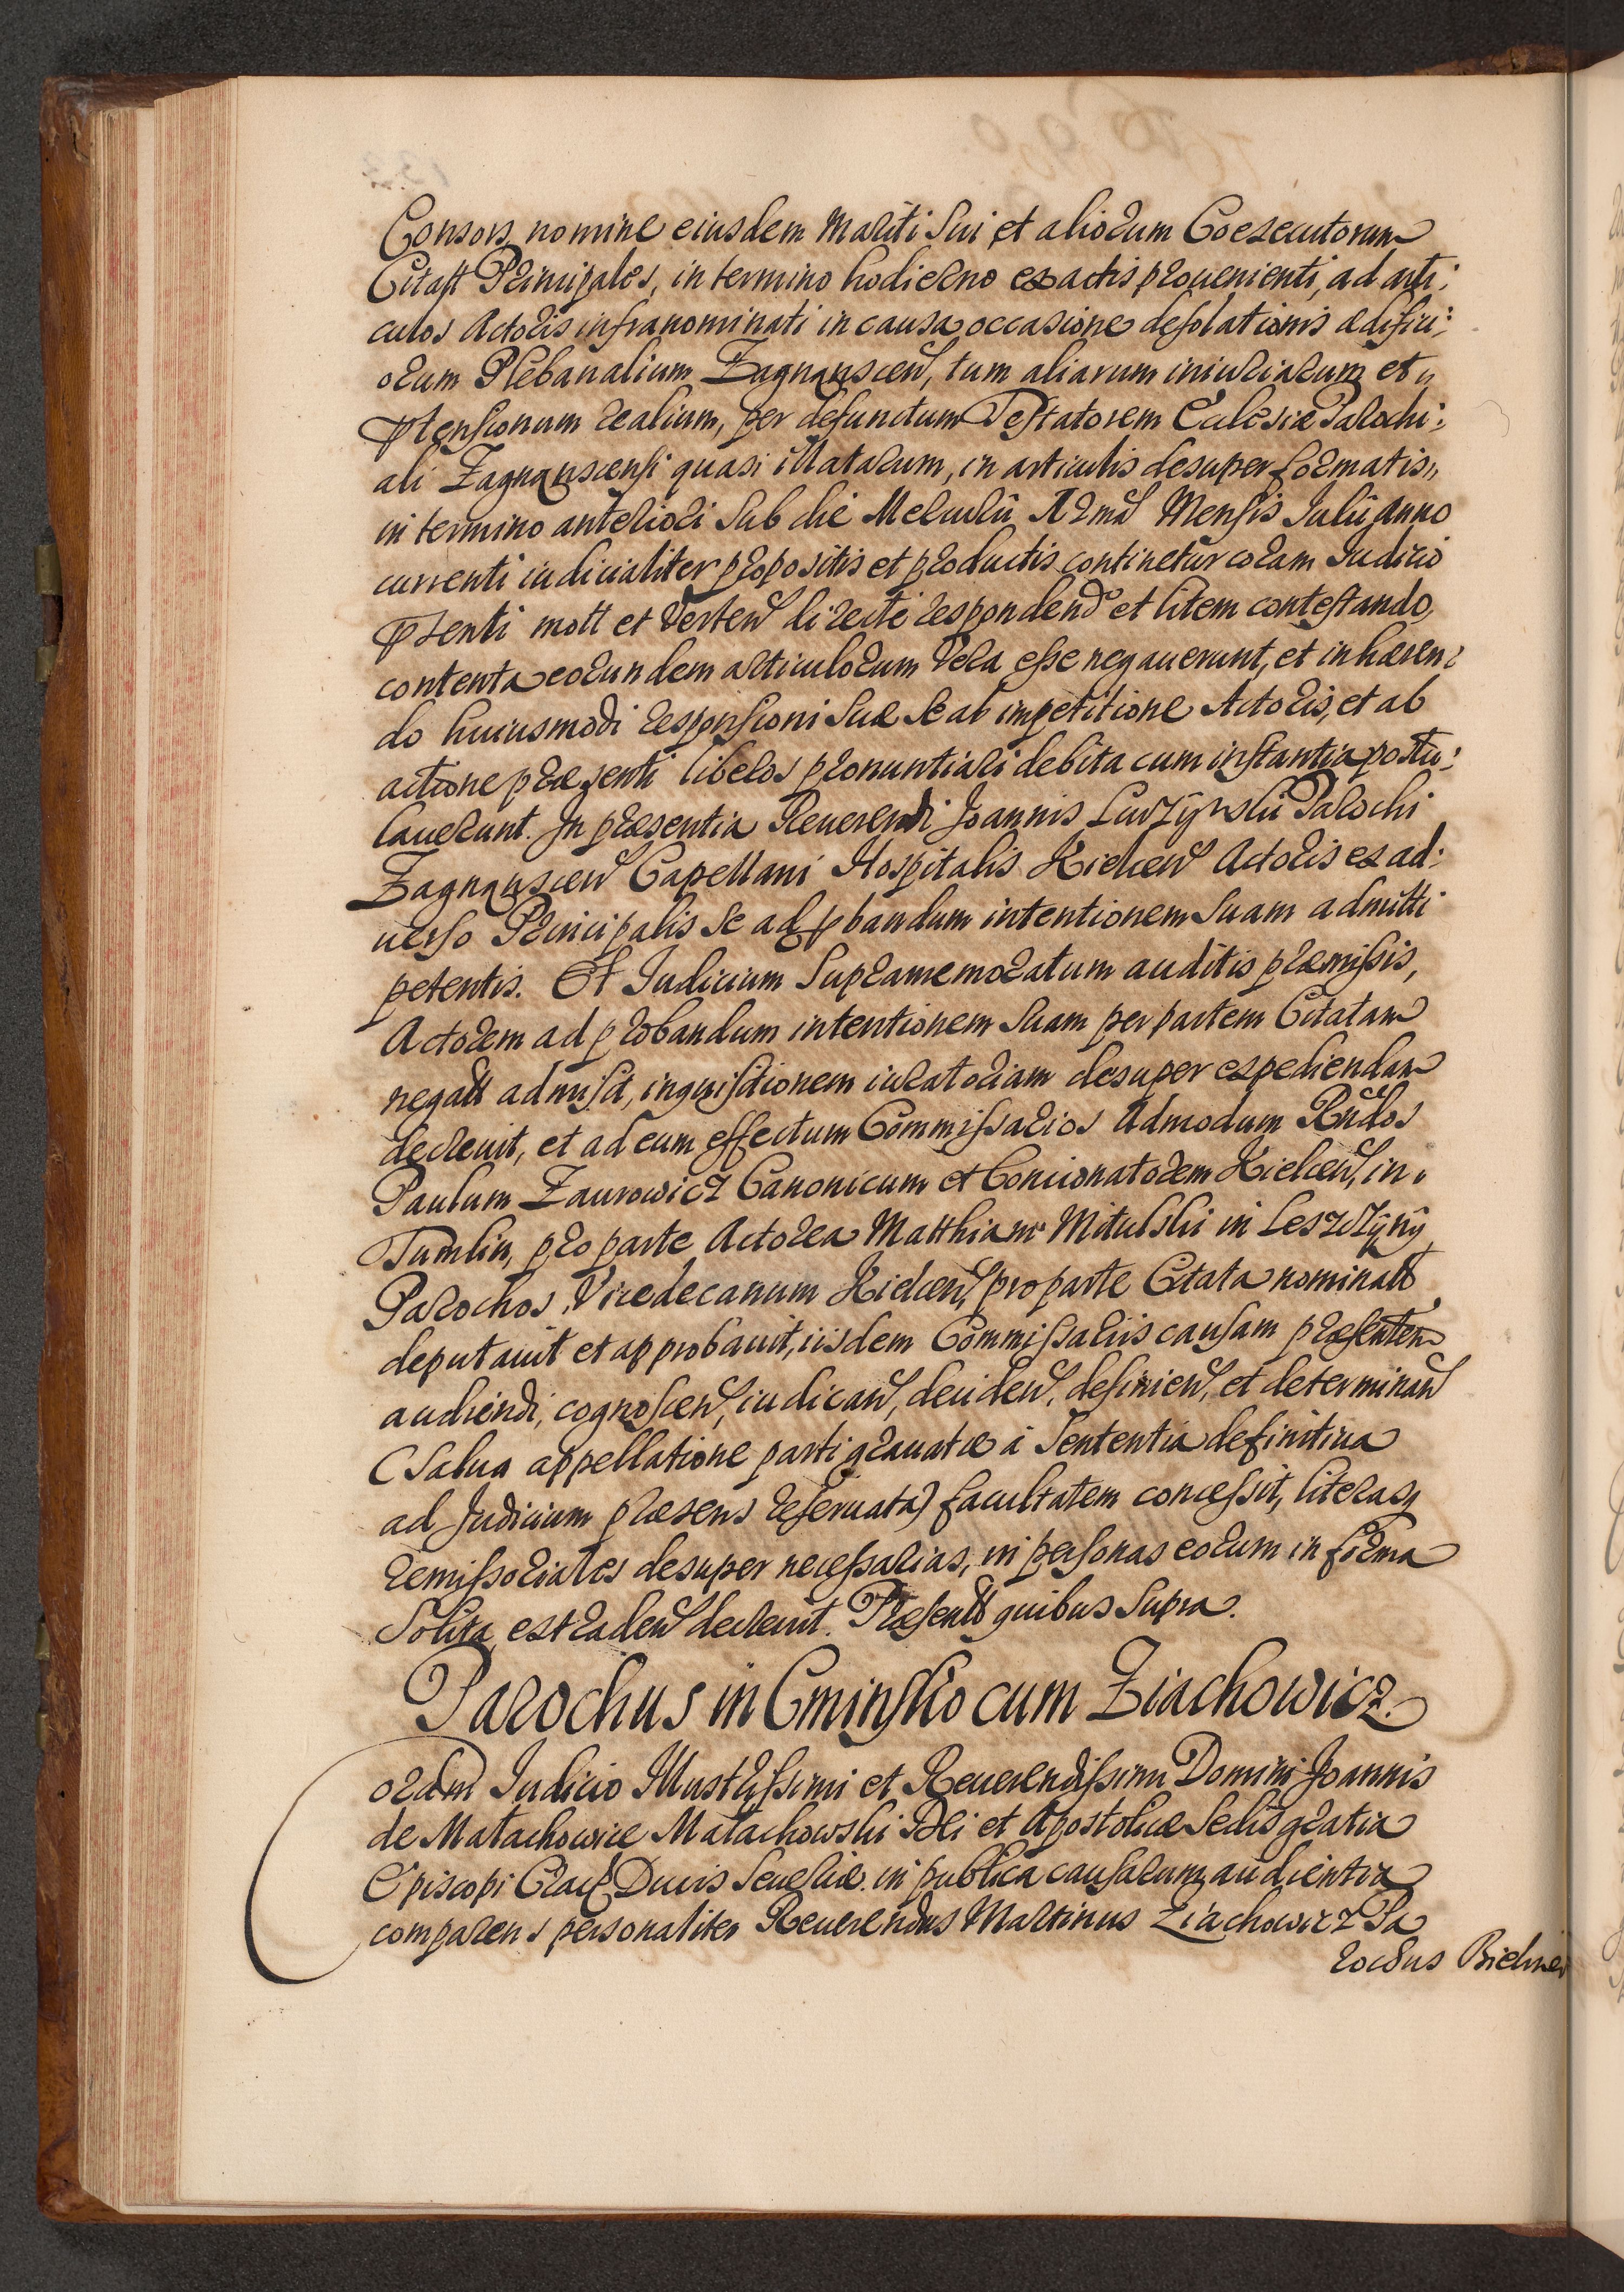 Consors nomine eiusdem Mariti Sui et aliorum Coexecutorum
Citatt Principales, in termino hodierno ex actis prouenienti, ad arti:
culos Actoris infranominati in causa occasione desolationis ædifici:
orum Plebanalium Zagnanscen, tum aliarum iniuriarum et
ptensionum realium, per defunctum Testatorem Ecclesiæ Parochi:
ali Zagnanscensi quasi illatarum, in articulis desuper formatis,
in termino anteriori Sub die Mercurii Mensis Julii Anno
currenti iudicialiter propositis et productis continetur coram Judicio
psenti mott et verten directe responden et litem contestando,
contenta eorundem articulorum Vera esse negauerunt, et inhæren:
do huiusmodi responsioni Suæ Se ab impetitione Actoris, et ab
actione præsenti liberos pronuntiari debita cum instantia postu:
lauerunt. In præsentia Reuerendi Joannis Parochi
Zagnanscen Capellani Hospitalis Kielcen Actoris ex ad:
uerso Principalis Se ad pbandum intentionem Suam admitti
petentis. Et Judicium Supramemoratum auditis præmissis,
Actorem ad probandum intentionem Suam per partem Citatam
negatt admisit, inquisitionem iuratoriam desuper expediendam
decreuit, et ad eum effectum Commissarios Admodum Rndos
Paulum Zaurowicz Canonicum et Concionatorem Kielcen, in
Tumlin, pro parte Actorea Matthiam Mitulski in Leszczÿnÿ
Parochos, Vicedecanum Kielcen, pro parte Citata nominatt
deputauit et approbauit, iisdem Commissariis causam præsentem
audiendi, cognoscen, iudican, deciden, definien, et determinan
(Salua appellatione parti grauatæ à Sententia definitiua
ad Judicium præsens reseruata) facultatem concessit, literasq
remissoriales desuper necessarias, in personas eorum in forma
Solita extraden decreuit. Præsentt quibus Supra.
Parochus in Cminsko cum Ziachowicz.
Coram Judicio Illustrissimi et Reuerendissimi Domini Joannis
de Małachowice Małachowski Dei et Apostolicæ Sedis gratia
Episcopi Crac Ducis Seueriæ in publica causarum audientia
comparens personaliter Reuerendus Martinus Ziachowicz Pa
rochus